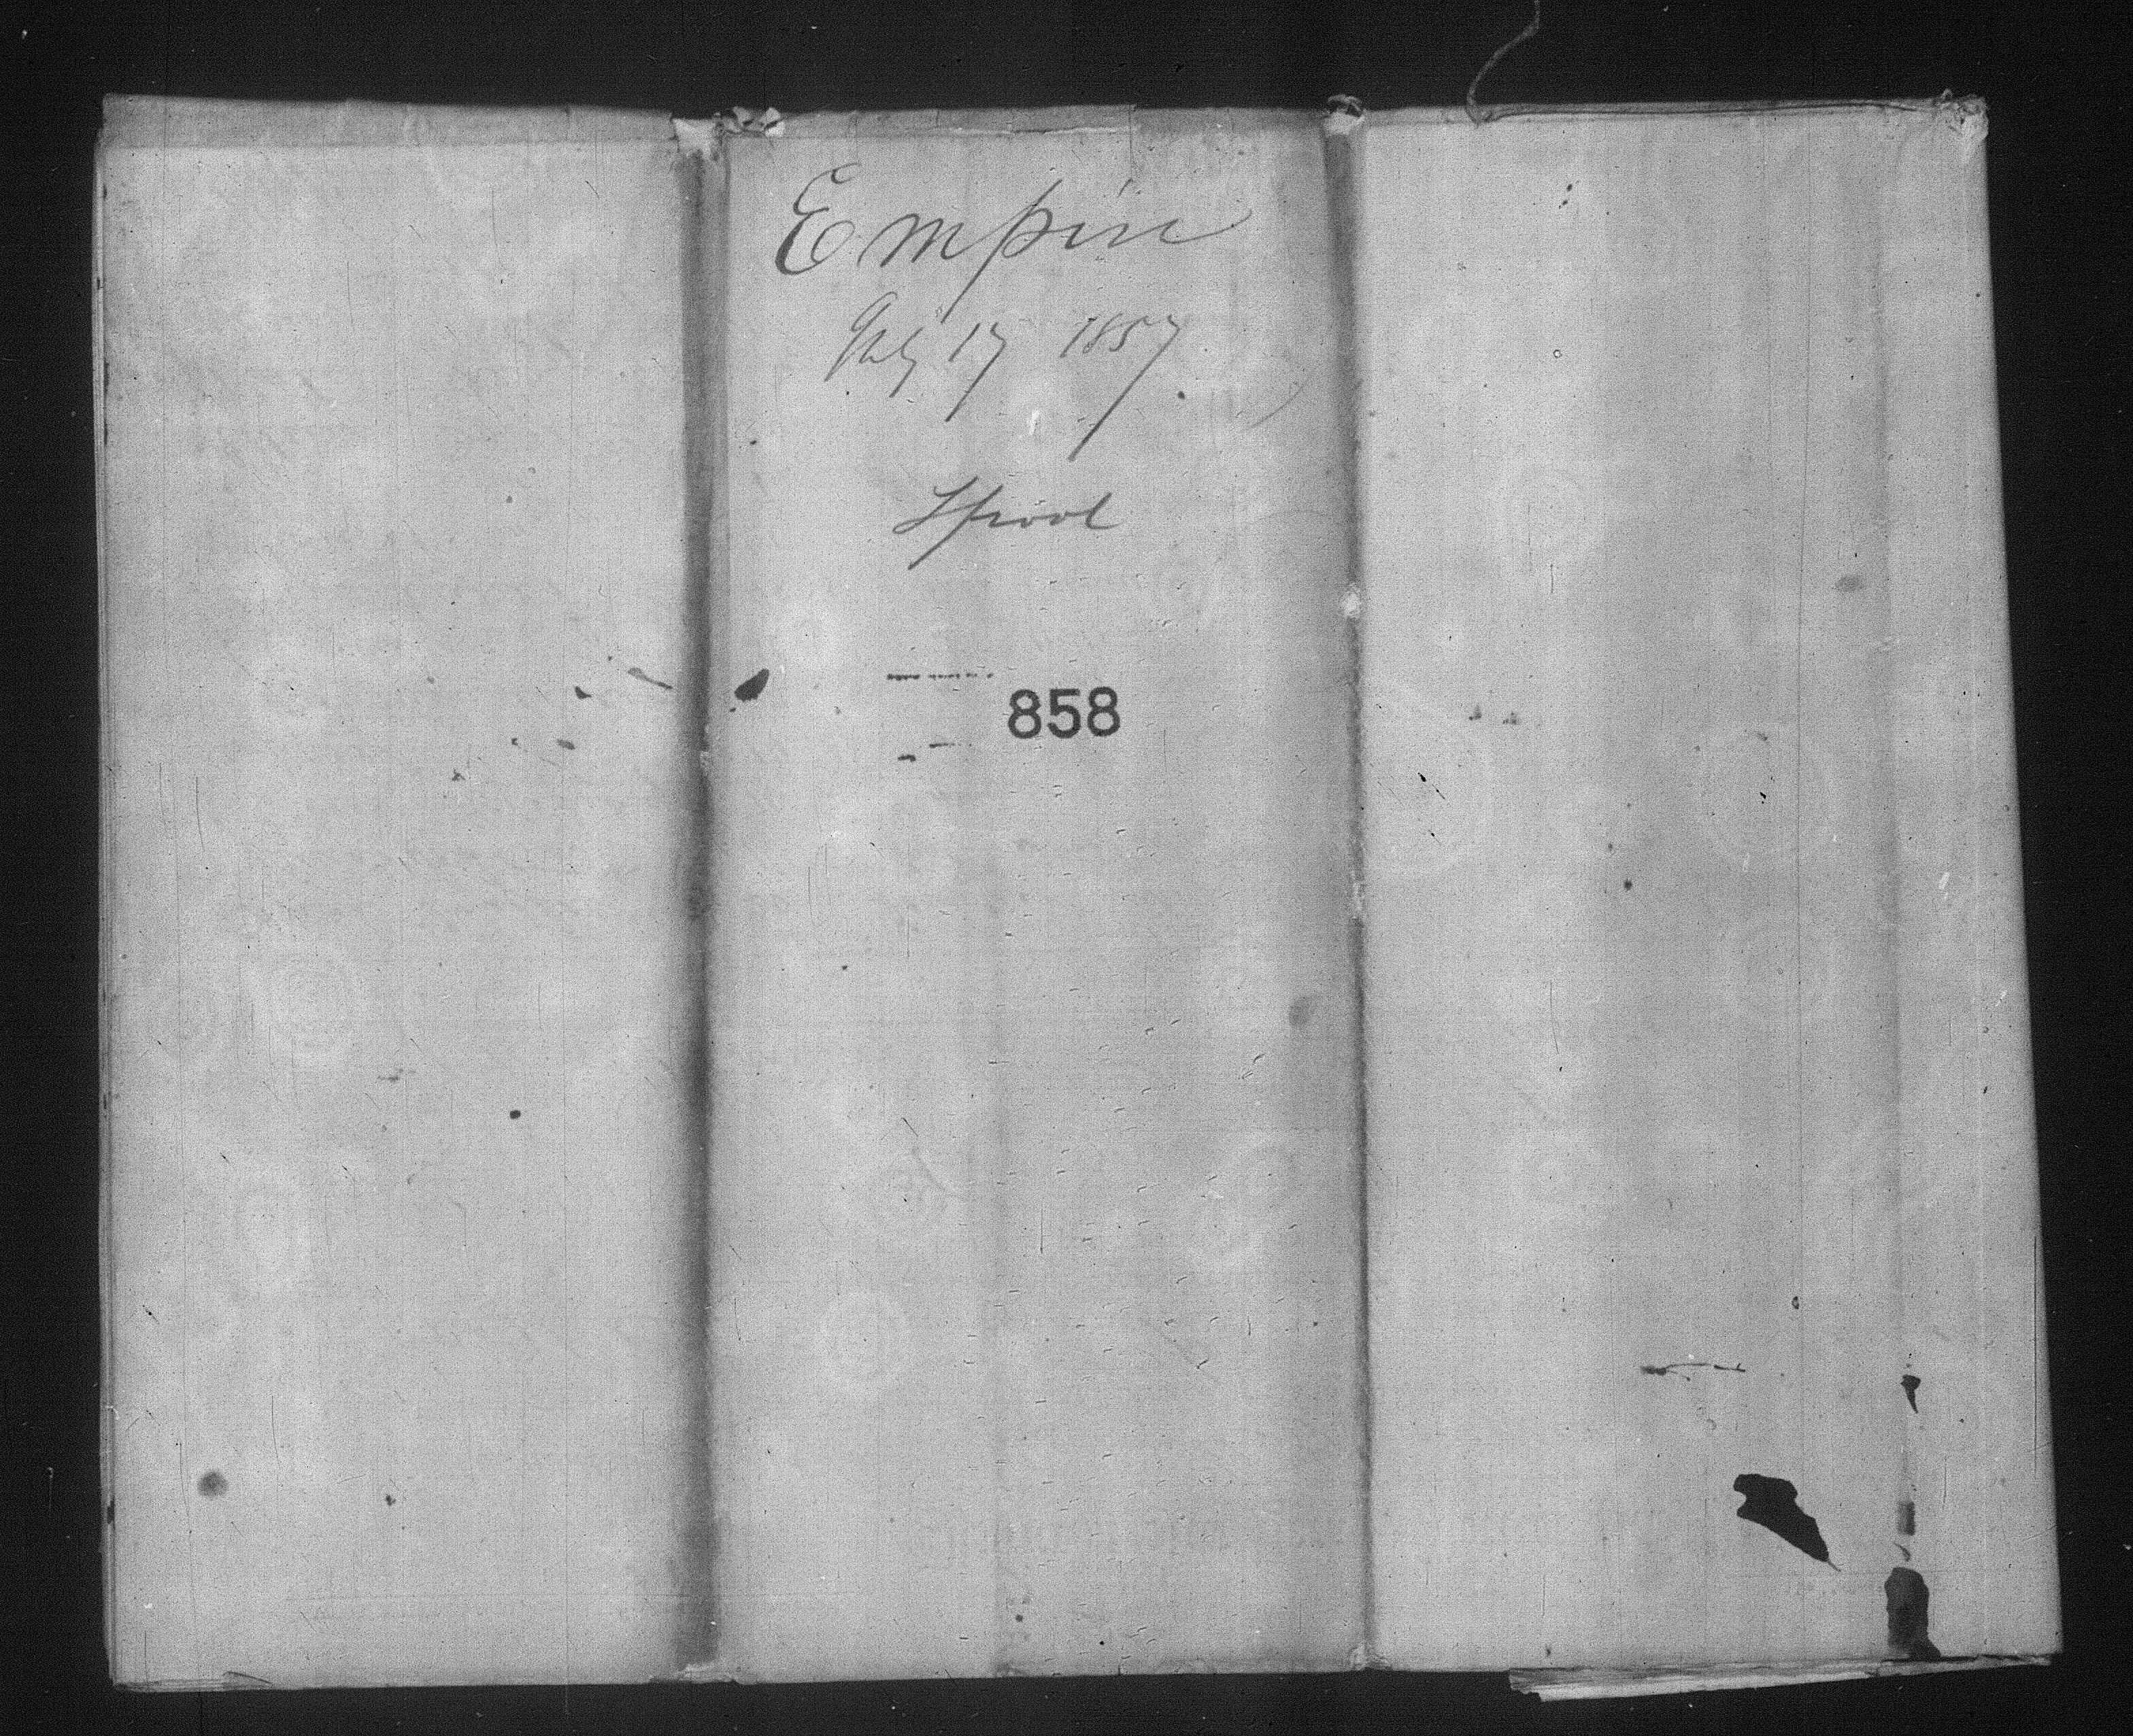 Empire
July 17 1857
Lpool
858